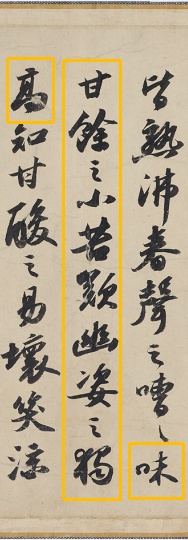 皆熟沸春聲之嘈々味
甘餘之小苦嘆幽姿之獨
高知甘酸之易壞笑涼